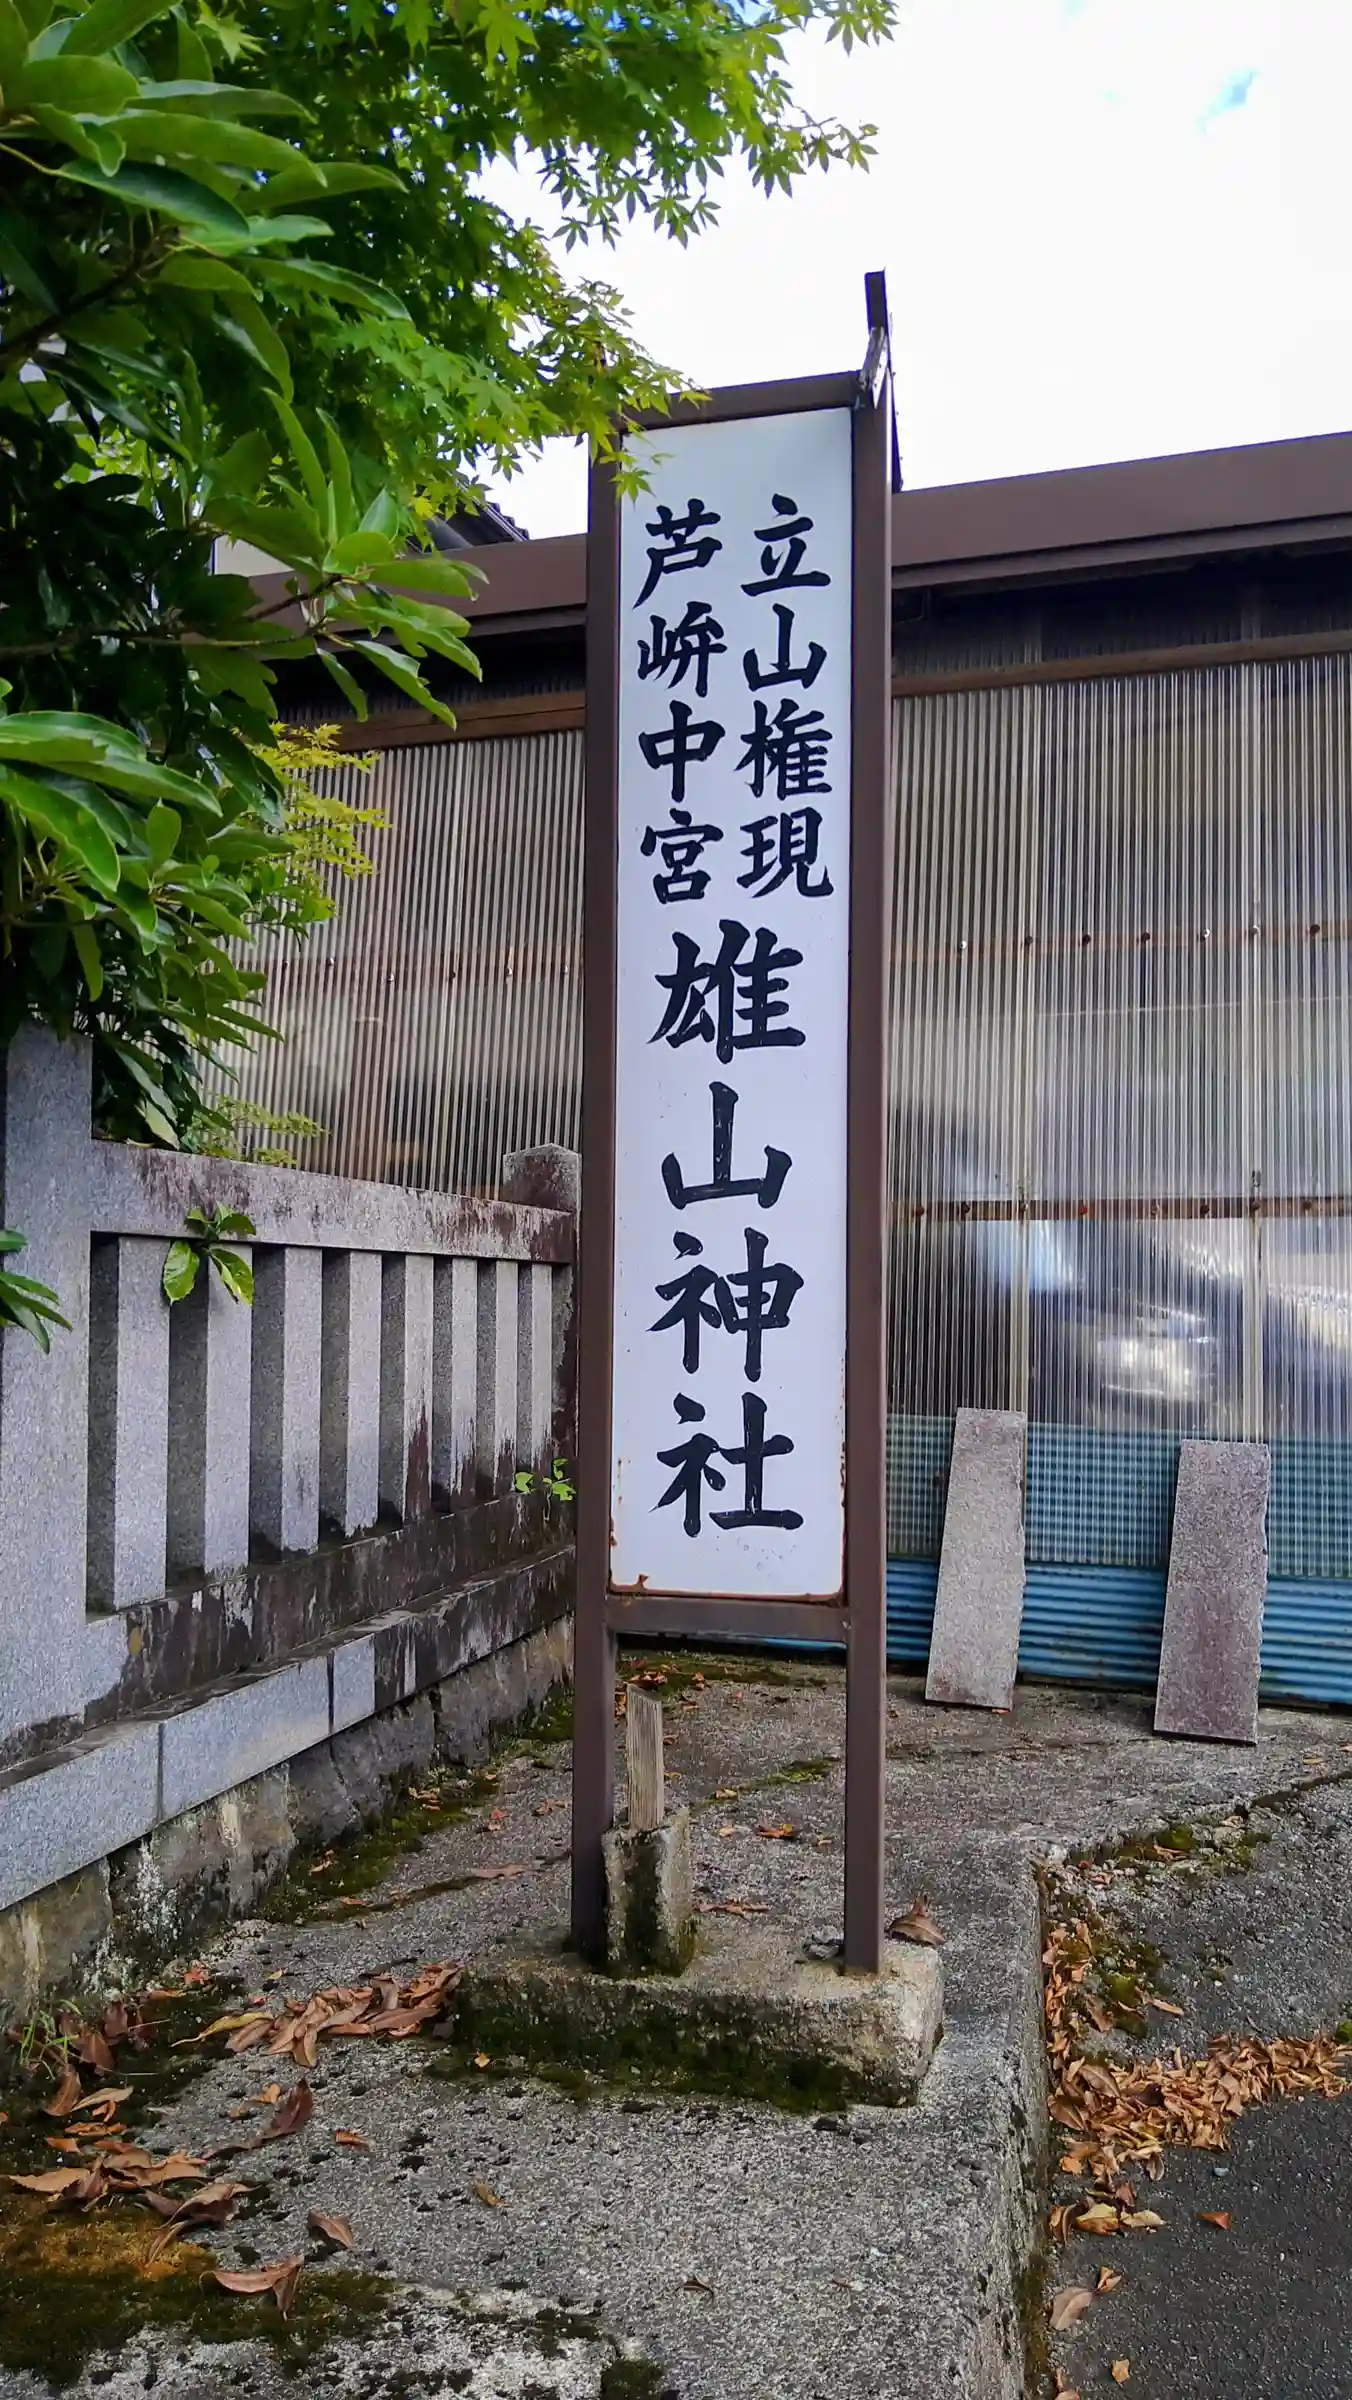 立山権現
芦峅中宮
雄山神社